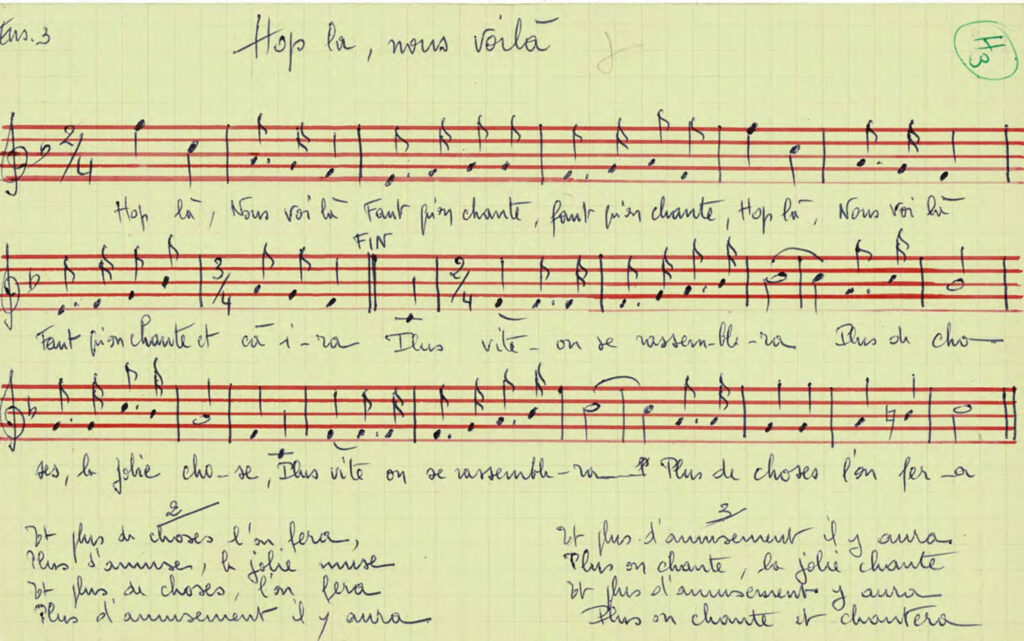 Ens. 3
Hop la, nous voilà
H3
2/4
Hop là, Nous voi là Faut qu'on chante, faut qu'on chante, Hop là, Nous voi là
FIN
3/4
2/4
Faut qu'on chante et çà i-ra Plus vite- on se rassem-ble-ra Plus de cho-
ses, la jolie cho-se, Plus vite on se rassemble-ra Plus de choses l'on fer-a
2
Et plus de choses l'on fera,
Plus s'amuse, la jolie muse
Et plus de choses, l'on fera
Plus d'amusement il y aura
3
Et plus d'amusement il y aura
Plus on chante, la jolie chante
Et plus d'amusement y aura
Plus on chante et chantera